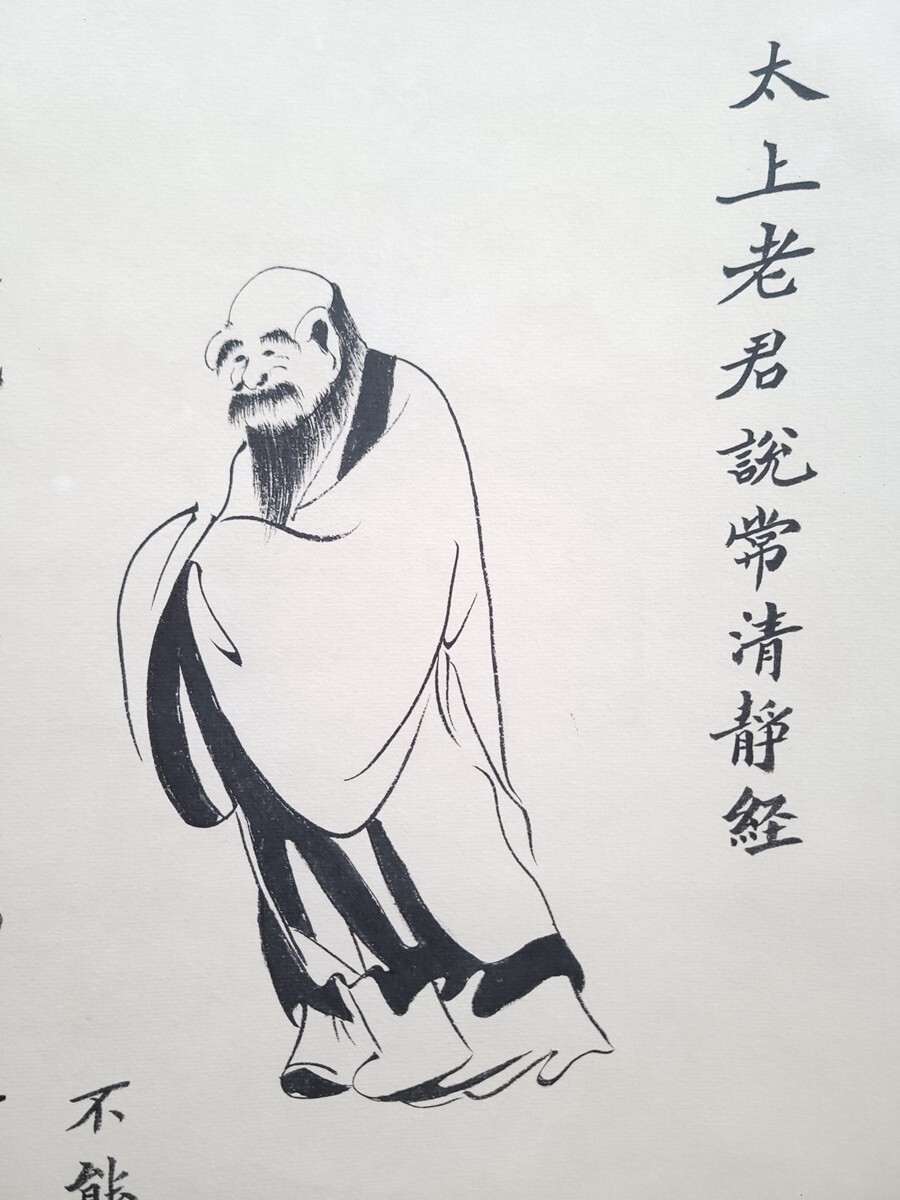 太上老君說常清靜経
不能